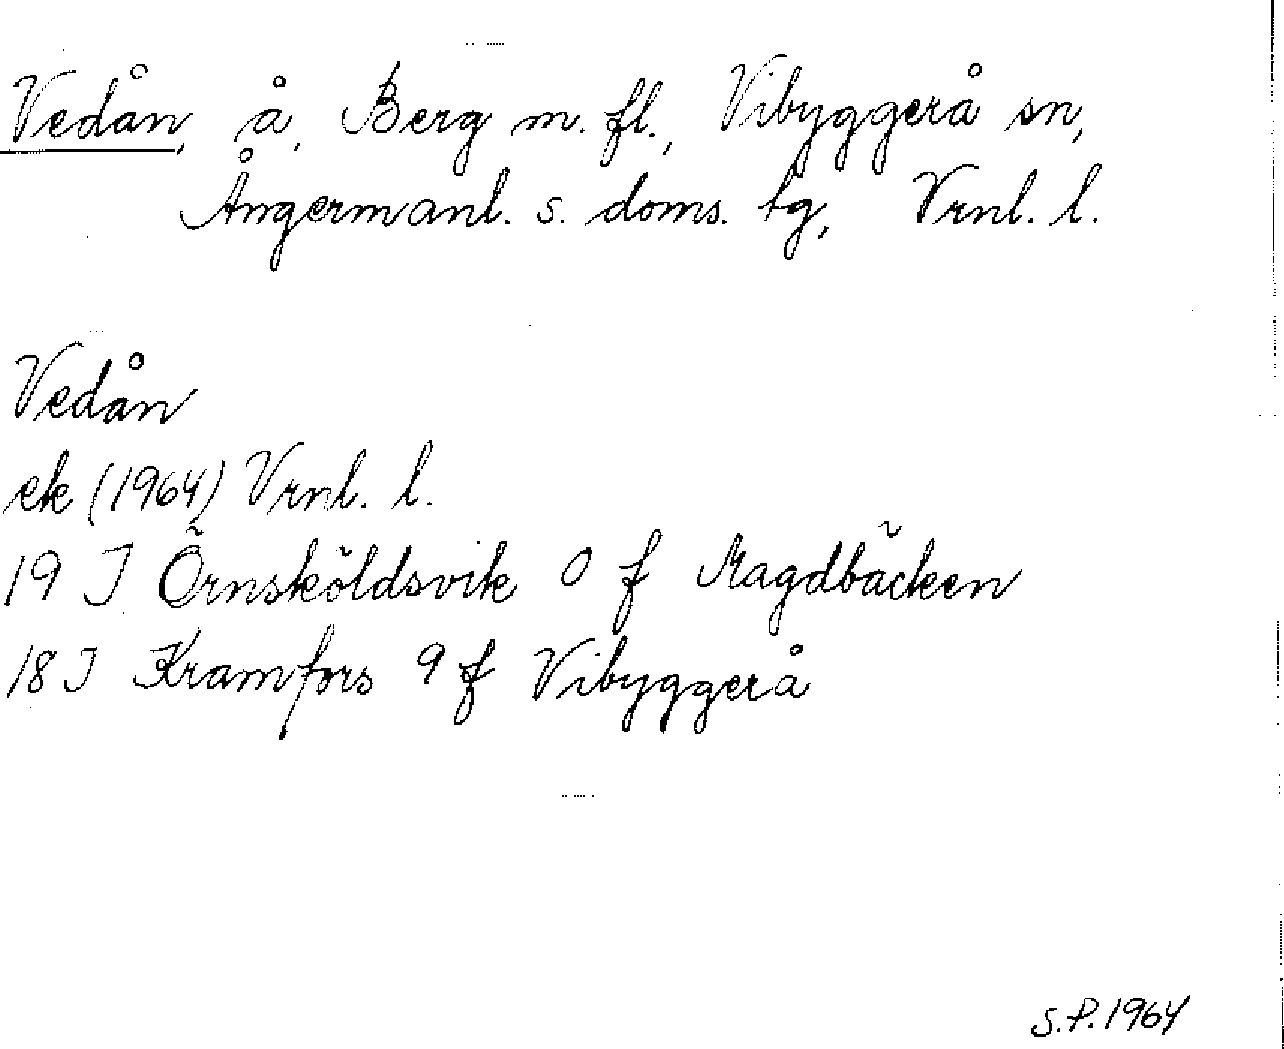 Vedån, å, Berg m. fl., Vibyggerå sn,
Ångermanl. s. doms. tg, Vrnl. l.
Vedån
ek (1964) Vrnl. l.
19 J Örnsköldsvik 0 f Magdbäcken
18 J Kramfors 9 f Vibyggerå
S.P. 1964